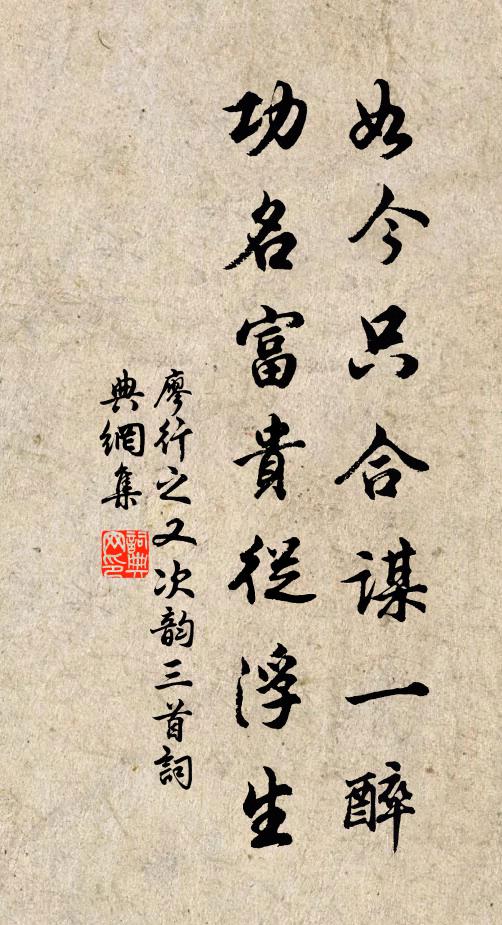 如今只合謀一醉
功名富貴從浮生
廖行之又次韵三首詞
典網集
詞典
网印